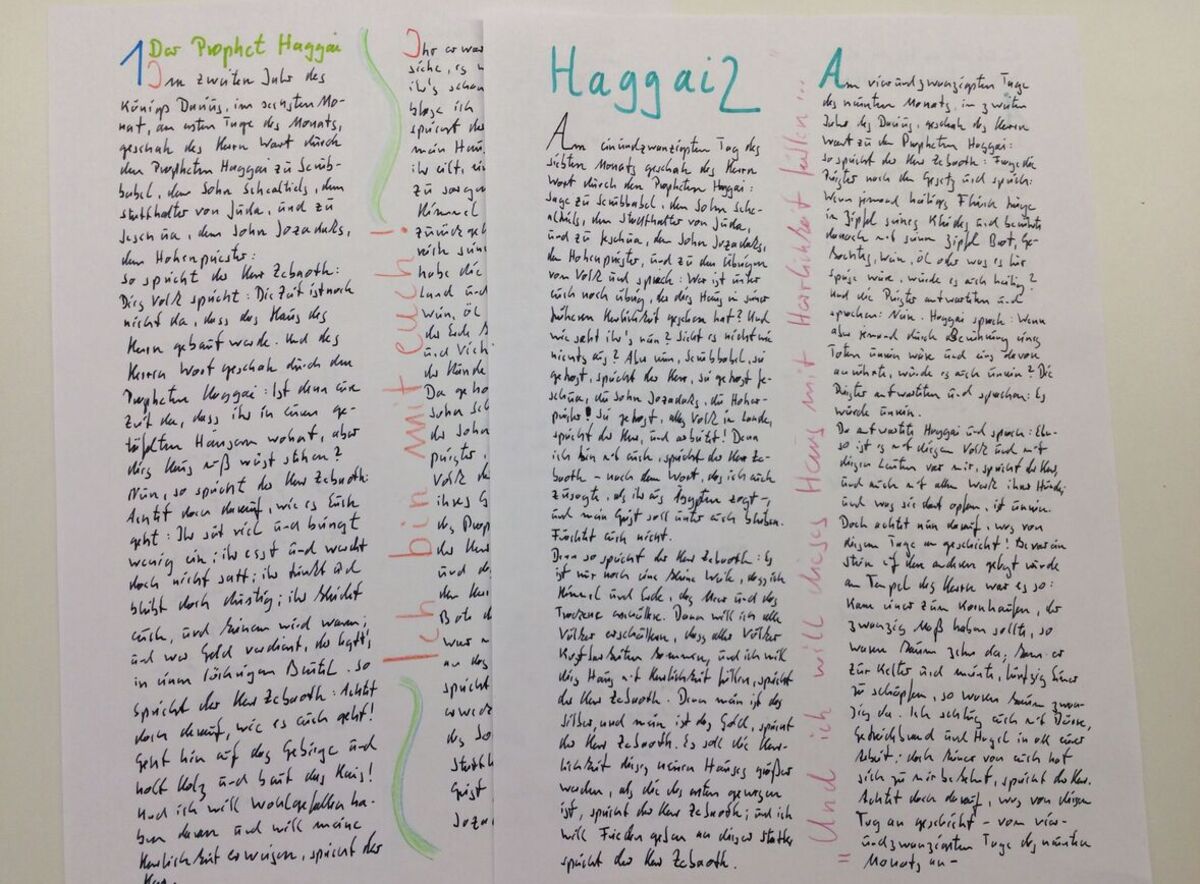 1 Der Prophet Haggai
Im zweiten Jahr des
Königs Darius, im sechsten Mo-
nat, am ersten Tage des Monats,
geschah des Herrn Wort durch
den Propheten Haggai zu Serub-
babel, dem Sohn Schealtiels, dem
Statthalter von Juda, und zu
Jeschua, dem Sohn Jozadaks,
dem Hohenpriester:
So spricht der Herr Zebaoth:
Dies Volk spricht: Die Zeit ist noch
nicht da, dass des Haus des
Herrn gebaut werde. Und des
Herrn Wort geschah durch den
Propheten Haggai: Ist denn eure
Zeit da, dass ihr in euren ge-
täfelten Häusern wohnt, aber
dies Haus muß wüst stehen?
Nun, so spricht der Herr Zebaoth:
Achtet doch darauf, wie es Euch
geht: Ihr sät viel und bringt
wenig ein; ihr esst und werdet
doch nicht satt; ihr trinkt und
bleibt doch durstig; ihr kleidet
euch, und keinem wird warm;
und wer Geld verdient, der legt's
in einen löchrigen Beutel. So
spricht der Herr Zebaoth: Achtet
doch darauf, wie es euch geht!
Geht hin auf das Gebirge und
holt Holz und baut das Haus!
Und ich will Wohlgefallen ha-
ben daran und will meine
Herrlichkeit erweisen, spricht der
Herr.
Ich bin mit euch!
Ihr
siehe, es
ihr's
blase ich
spricht
mein Haus
ihr eilt,
zu sorgen
Himmel
zurück
habe die
Land und
Wein, Öl
die Erde
und Vieh
der Hände
Da
Sohn
der Sohn
priester,
Volk
ihres
des
der Herr
und
der Herr
Bote
war
an
spricht
erweckte
des
Statth
Geist
Joza
Haggai 2
Am einundzwanzigsten Tag des
siebten Monats geschah des Herrn
Wort durch den Propheten Haggai:
Sage zu Serubbabel, dem Sohn Sche-
altiels, dem Statthalter von Juda,
und zu Jeschua, dem Sohn Jozadaks,
dem Hohenpriester, und zu den Übrigen
vom Volk und sprach: Wer ist unter
euch noch übrig, der dies Haus in seiner
früheren Herrlichkeit gesehen hat? Und
wie seht ihr's nun? Sieht es nicht wie
nichts aus? Aber nun, Serubbabel, sei
getrost, spricht der Herr, sei getrost Je-
schua, du Sohn Jozadaks, du Hoher-
priester! Sei getrost, alles Volk im Lande,
spricht der Herr, und arbeitet! Denn
ich bin mit euch, spricht der Herr Ze-
baoth – nach dem Wort, das ich euch
zusagte, als ihr aus Ägypten zogt –,
und mein Geist soll unter euch bleiben.
Fürchtet euch nicht.
Denn so spricht der Herr Zebaoth: Es
ist nur noch eine kleine Weile, dass ich
Himmel und Erde, das Meer und das
Trockene erschüttere. Dann will ich alle
Völker erschüttern, dass aller Völker
Kostbarkeiten kommen, und ich will
dies Haus mit Herrlichkeit füllen, spricht
der Herr Zebaoth. Denn mein ist das
Silber, und mein ist das Gold, spricht
der Herr Zebaoth. Es soll die Herr-
lichkeit dieses neuen Hauses größer
werden, als die des ersten gewesen
ist, spricht der Herr Zebaoth; und ich
will Frieden geben an dieser Stätte
spricht der Herr Zebaoth.
" Und ich will dieses Haus mit Herrlichkeit füllen ... "
Am vierundzwanzigsten Tage
des neunten Monats, im zweiten
Jahr des Darius, geschah des Herrn
Wort zu dem Propheten Haggai:
So spricht der Herr Zebaoth: Frage die
Priester nach dem Gesetz und sprich:
Wenn jemand heiliges Fleisch trüge
im Zipfel seines Kleides und berührte
danach mit seinem Zipfel Brot, Ge-
kochtes, Wein, Öl oder was es für
Speise wäre, würde es auch heilig?
Und die Priester antworteten und
sprachen: Nein. Haggai sprach: Wenn
aber jemand durch Berührung eines
Toten unrein wäre und eins davon
anrührte, würde es auch unrein? Die
Priester antworteten und sprachen: Es
würde unrein.
Da antwortete Haggai und sprach: Eben-
so ist es mit diesem Volk und mit
diesen Leuten vor mir, spricht der Herr,
und auch mit allem Werk ihrer Hände;
und was sie dort opfern, ist unrein.
Doch achtet nun darauf, was von
diesem Tage an geschieht! Bevor ein
Stein auf den anderen gelegt würde
am Tempel des Herrn war es so:
Kam einer zum Kornhaufen, der
zwanzig Maß haben sollte, so
waren kaum zehn da; kam er
zur Kelter und meinte, fünfzig Eimer
zu schöpfen, so waren kaum zwan-
zig da. Ich schlug euch mit Dürre,
Getreidebrand und Hagel in all eurer
Arbeit; doch keiner von euch hat
sich zu mir bekehrt, spricht der Herr.
Achtet doch darauf, was von diesem
Tag an geschieht – vom vier-
undzwanzigsten Tage des neunten
Monats an –